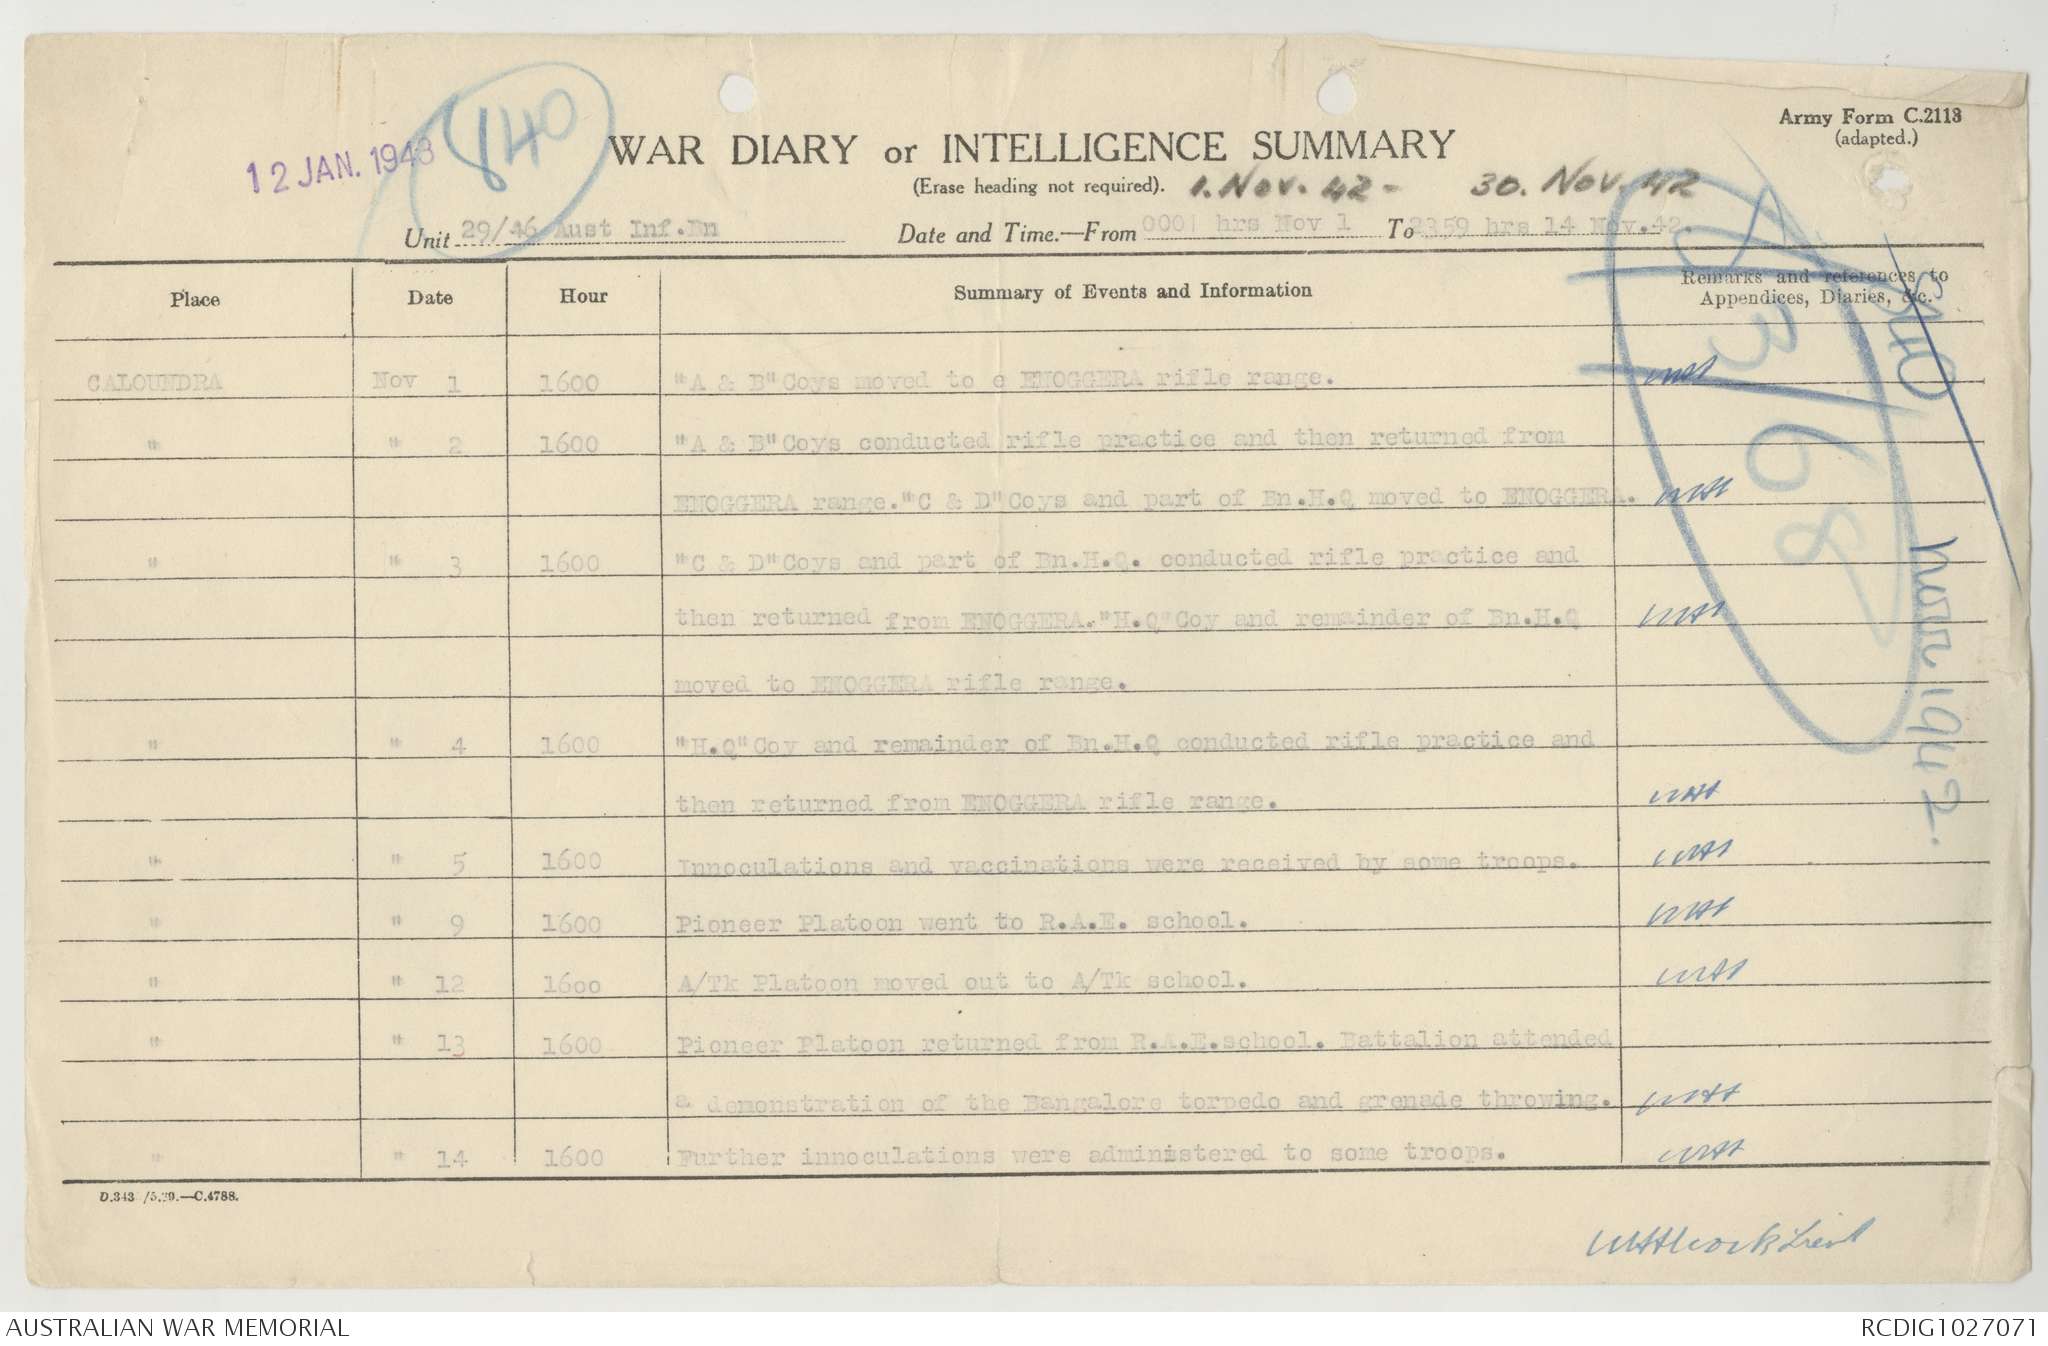 12 JAN. 1943
840
Army Form C.2118
(adapted.)
WAR DIARY or INTELLIGENCE SUMMARY
(Erase heading not required).
1. Nov. 42 - 30. Nov. 42
Unit 29/46 Aust Inf.Bn
Date and Time.—From 0001 hrs Nov 1 To 2359 hrs 14 Nov.42.
Place Date Hour Summary of Events and Information
Remarks and references to
Appendices, Diaries, &c.
3/68
840
Nov 1942.
CALOUNDRA Nov 1 1600 "A & B"Coys moved to e ENOGGERA rifle range. WAH
" " 2 1600 "A & B"Coys conducted rifle practice and then returned from
ENOGGERA range."C & D"Coys and part of Bn.H.Q moved to ENOGGERA. WAH
" " 3 1600 "C & D"Coys and part of Bn.H.Q. conducted rifle practice and
then returned from ENOGGERA."H.Q"Coy and remainder of Bn.H.Q WAH
moved to ENOGGERA rifle range.
" " 4 1600 "H.Q"Coy and remainder of Bn.H.Q conducted rifle practice and
then returned from ENOGGERA rifle range. WAH
" " 5 1600 Innoculations and vaccinations were received by some troops. WAH
" " 9 1600 Pioneer Platoon went to R.A.E. school. WAH
" " 12 1600 A/Tk Platoon moved out to A/Tk school. WAH
" " 13 1600 Pioneer Platoon returned from R.A.E.school. Battalion attended
a demonstration of the Bangalore torpedo and grenade throwing. WAH
" " 14 1600 Further innoculations were administered to some troops. WAH
Lieut
AUSTRALIAN WAR MEMORIAL
RCDIG1027071